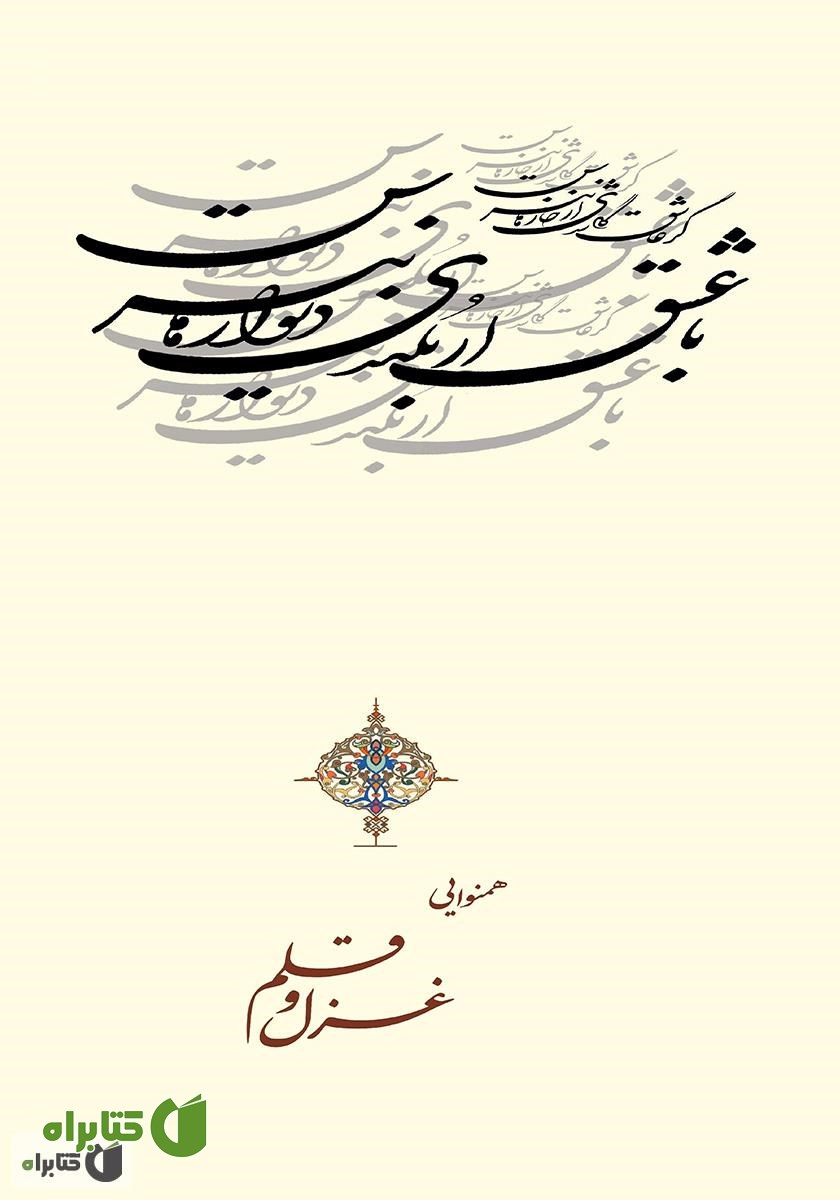 گر عاشق از خارها نترس
با عشق از بلندی دیوارها نترس
همنوایی
غزل و قلم
کتابراه
کتابراه